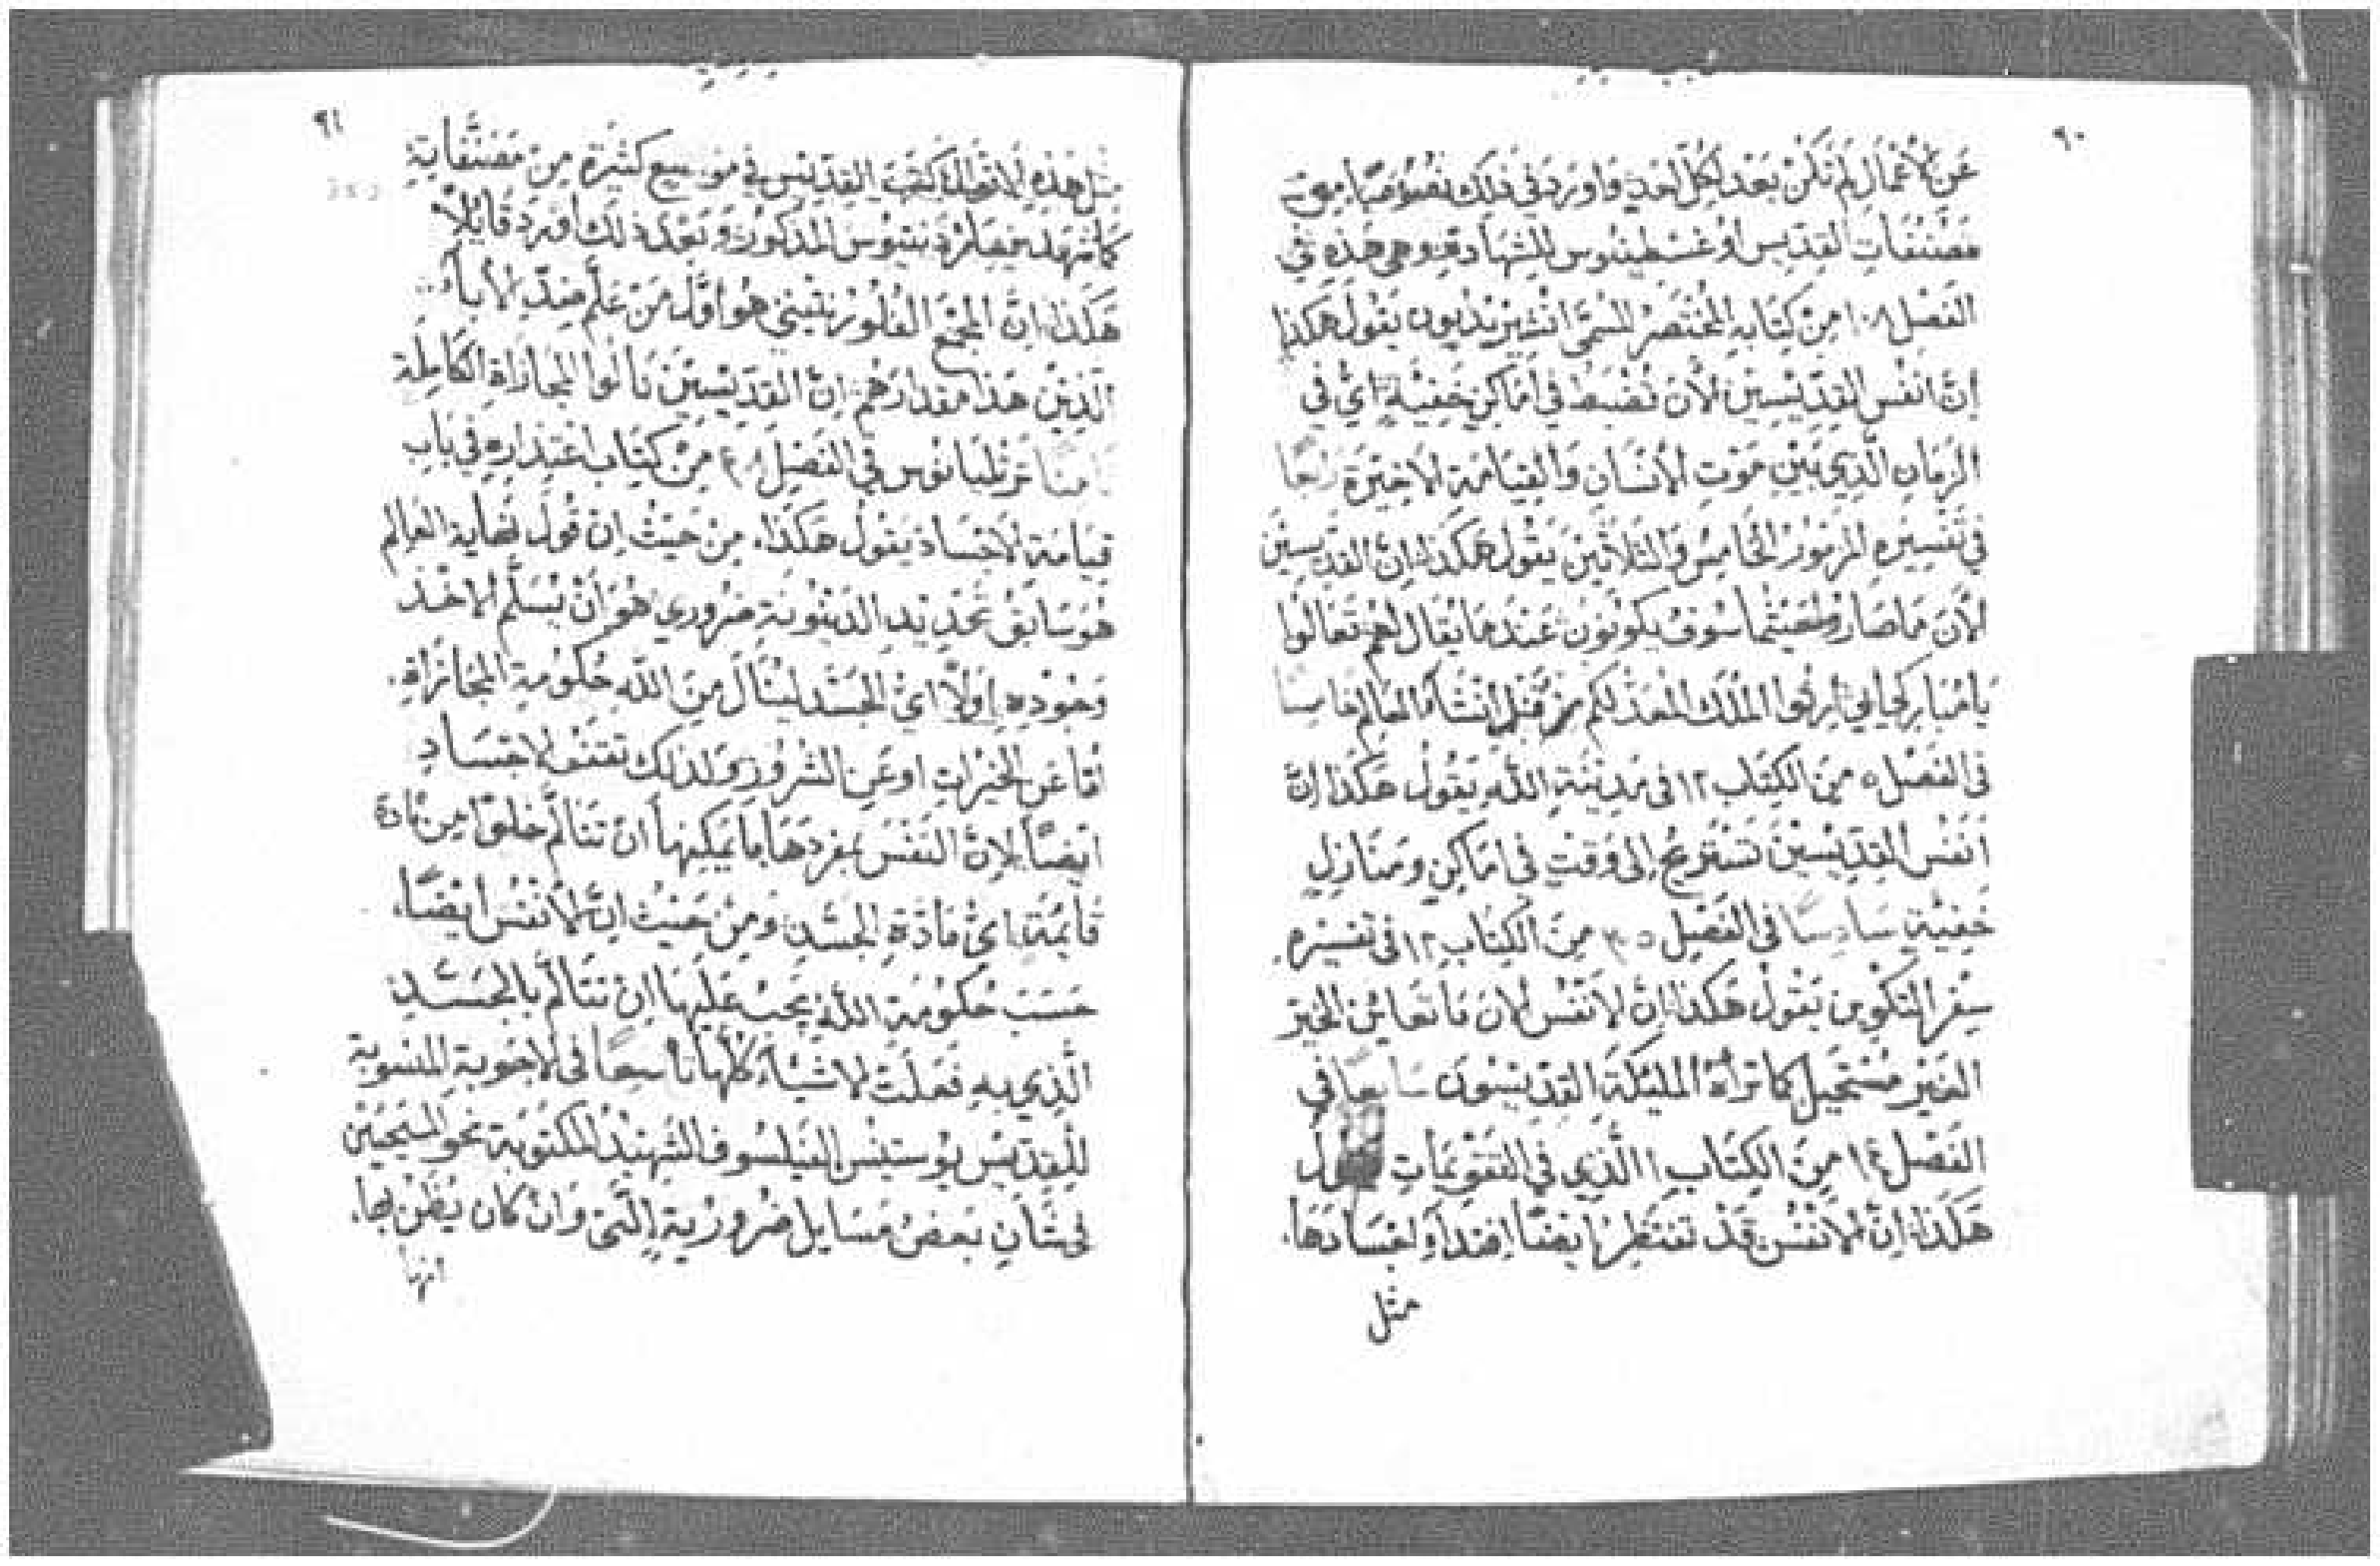 ٩٠
عَنِ الأَعْمَالِ لَم تَكُنْ بَعْد لِكُلِّ أَحَدٍ وَاورَدَ فِي ذَلِكَ نُصُوصًا مِن
مُصَنَّفَاتِ القِدِّيسِ اوغسطينوس للشهادة وهي هذه في
الفَصل ١٠٨ مِنْ كِتَابِهِ المُخْتَصَرِ المُسَمَّى انشيريديون يَقُولُ هكذا
إنَّ انفُسَ القِدِّيسِينَ الأن تُضْبَطُ في امَاكِنَ خَفِيَّةٍ ايْ في
الزمَانِ الَّذِي بَيْنَ مَوْتِ الأنسَانِ وَالقِيَامَةِ الاخِيرَةِ رابعًا
في تَفْسِيرِهِ المزمُورَ الخَامِسَ وَالثَلاَثِينَ يَقُولُ هكذا إنَّ القِدِّيسِينَ
الأنَ مَا صَارُوا حَيثُمَا سَوْفَ يَكُونُونَ عِنْدَمَا يُقَال لَهُمْ تَعَالُوا
يَا مُبَارَكِي ابي ارِثُوا المُلكَ المُعَدَّ لكم مِنْ قَبْلِ انشَاءِ العَالَمِ خامِسًا
في الفَصْل ٩ مِنَ الكِتَاب ١٢ في مَدِينَةِ اللهِ يَقُولُ هَكَذَا إنَّ
أنفُسَ القِدِّيسِينَ تَسْتَرِيحُ إلى وَقْتٍ في امَاكِنَ ومَنَازِلَ
خَفِيَّةٍ سَادِسًا في الفَصْلِ ٣٥ مِنَ الكِتَابِ ١٢ في تفسِيرِهِ
سِفْرَ التَكْوِين يَقُولُ هَكَذَا إنَّ الأنفُسَ الأنَ مَا تُعَايِنُ الخَيْرَ
الغَيْرَ مُسْتَحِيل كما تَرَاهُ المليكَةُ القِدِّيسُونَ سَابِعًا في
الفَصْل ١٤ مِنَ الكِتَابِ ١ الَّذِي في التَقْوِيمَاتِ يقول
هَكَذَا إنَّ الأنفُسَ قَدْ تَنتَظِرُ ايضًا افتدَاءَ اجسَادَهَا
مثل
٩١
مثل هَذِهِ الأقوال كَتَبَ القِدِّيس في مَوَاضِيعَ كَثِيرَةٍ مِنْ مُصَنَّفَاتِهِ
كَمَا شهد المذكور وَبَعْدَ ذلك اورَدَ قَائِلاً
هَكَذَا إنَّ المَجْمَعَ الفلُورَنتيني هُوَ اوَّلُ مَنْ عَلَّمَ ضِدّ الأباءِ
الَّذِينَ هَذَا مِقدَارهُم إنَّ القِدِّيسِينَ نَالُوا المُجَازَاةَ الكَامِلَةَ
ثامِنًا تَرْتُليَانُوس في الفَصْلِ ٤٨ مِنْ كِتَاب اعْتِذَارِهِ في بَابِ
قِيَامَةِ الأجْسَادِ يَقُول هَكَذَا مِنْ حَيْثُ إنْ قَوْلَ نِهَايةِ العَالَم
هُوَ سَابِقُ تَحْدِيدِ الدَيْنُونَةِ ضَرُوري هُوَ انْ يُسَلَّم الاحَد
وَجُودِهِ اوَلاً ايْ الجَسَد لِيَنَالَ مِنَ اللهِ حُكُومَةَ المُجَازَاةِ
امَّا عَنِ الخَيْرَاتِ او عَنِ الشُرُورِ وَلذلك تقف الاجسَادِ
ايضًا لأنَّ النَفْسَ بمفردَهَا مَا يُمكِنهَا انْ تَتَألَّم خلوًا مِنْ مَادَة
قَائِمَةٍ ايْ مَادَةِ الجَسَدِ وَمِنْ حَيْثُ انَّ الأنفُسَ ايضًا
حَسَبَ حُكُومَةِ اللهِ يَجِبُ عَلَيهَا انْ تَتَألَّم بِالجَسَدِ
الَّذِي بِهِ فَعَلَتْ الاشيَاءَ كُلّهَا تَاسِعًا في الاجوبَةِ المَنْسُوبَةِ
للقِدِّيس يُوستينُس الفَيلسُوف الشَهِيد المَكْتُوبَة نَحْوَ المَسِيحِيّينَ
في شَأنِ بَعضِ مَسَايِل ضَرُورِيَّةٍ الَّتي وَانْ كَانَ يُظَنُّ بِهَا
انها